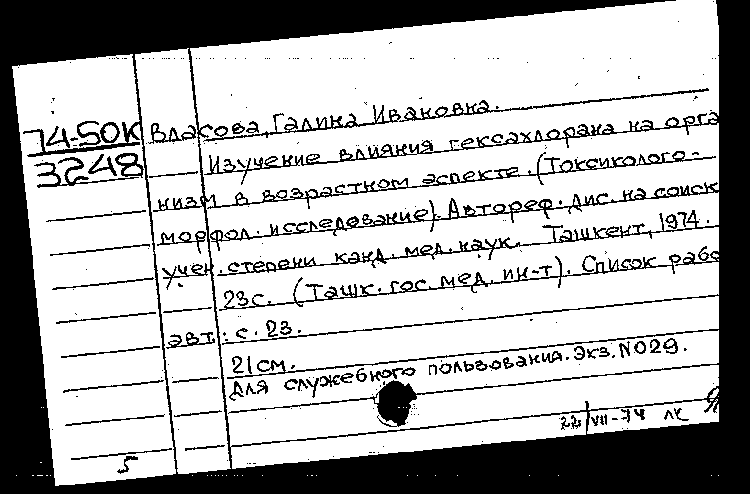 74-50К
3248
Власова, Галина Ивановна.
Изучение влияния гексахлорана на орга
низм в возрастном аспекте. (Токсиколого-
морфол. исследование). Автореф. дис. на соиск
учен. степени канд. мед. наук. Ташкент, 1974.
23с. (Ташк. гос. мед. ин-т). Список рабо
авт.: с. 23.
21см.
Для служебного пользования. Экз. N029.
22/VII-74 ЛК
5